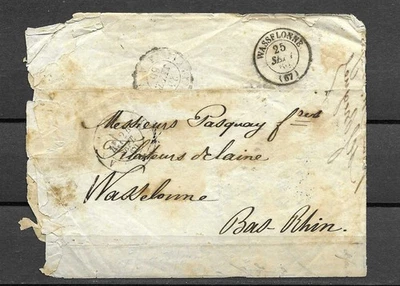 WASSELONNE
25
SEPT
(67)
Messieurs Pasquay frères
Filateurs de laine
Wasselonne
Bas-Rhin.